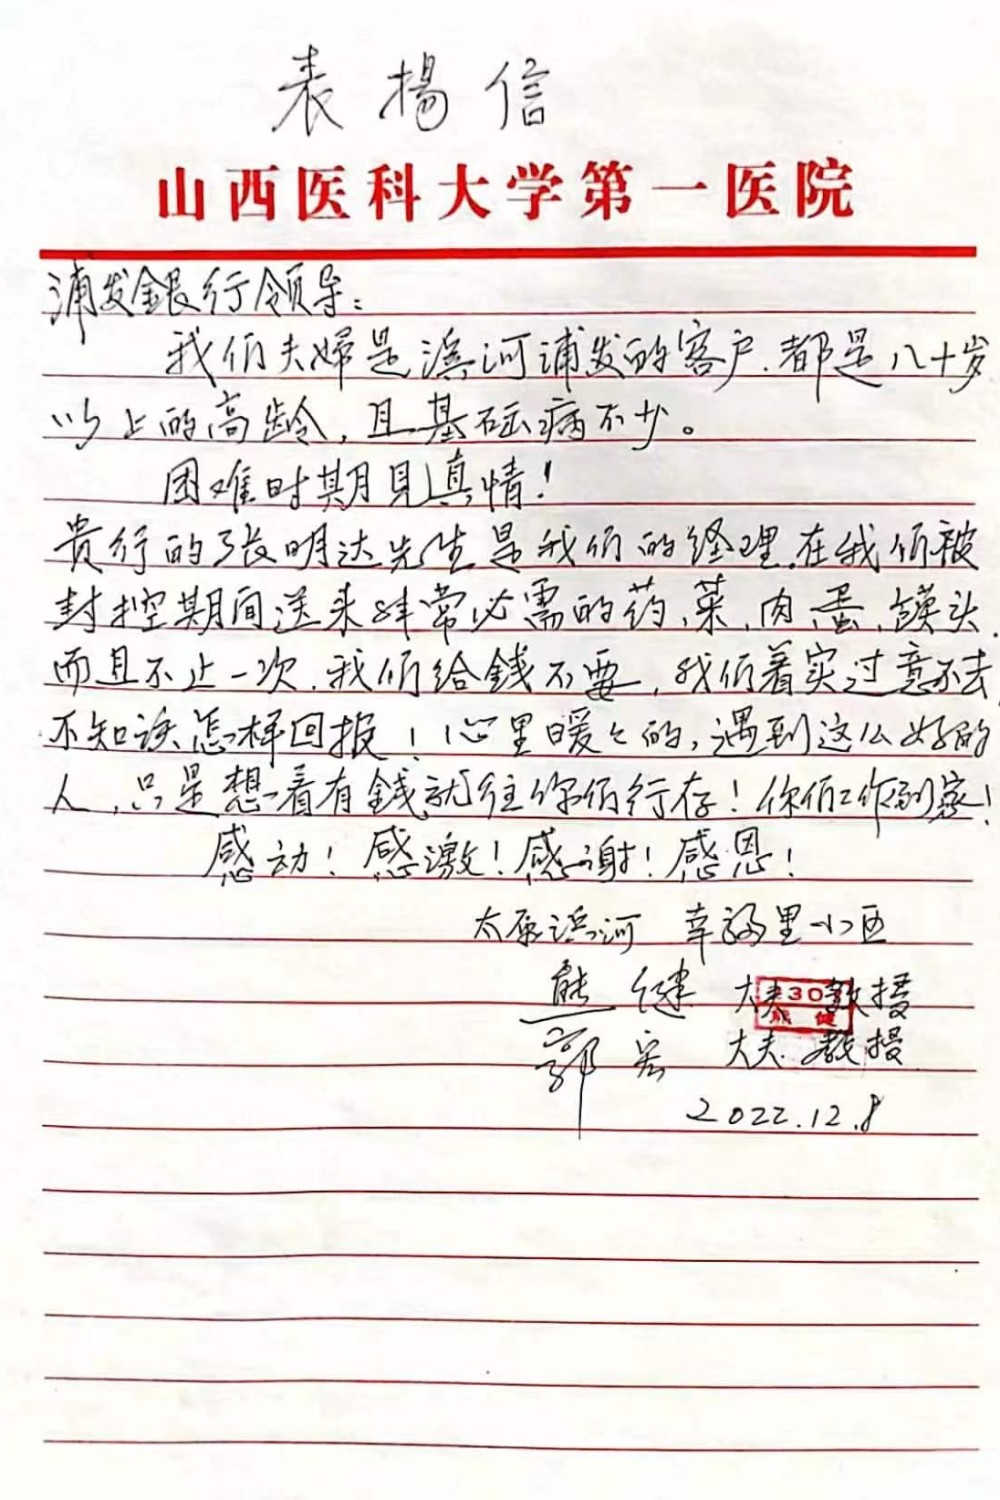 表揚信
山西医科大学第一医院
浦发銀行领导：
我们夫婦是滨河浦发的客户.都是八十岁
以上的高龄，且基础病不少。
困难时期見真情！
贵行的张明达先生是我们的经理.在我们被
封控期间送来非常必需的药、菜、肉、蛋、馍头.
而且不止一次.我们给錢不要，我们着实过意不去,
不知该怎样回报！心里暖々的,遇到这么好的
人，只是想着有錢就往你们行存！你们工作到家！
感动！感激！感谢！感恩！
太原滨河 幸福里小区
熊健 大夫 教授
郭宏 大夫.教授
2022.12.8
熊健